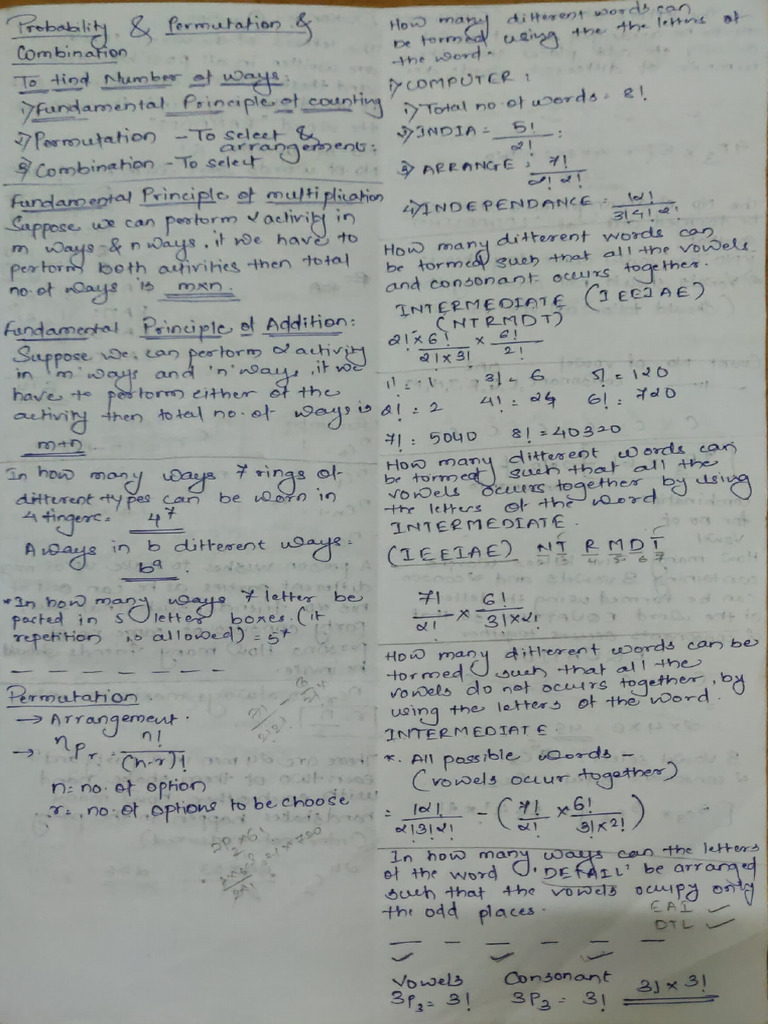 Probability & Permutation &
Combination
To find Number of ways:
1) Fundamental Principle of counting
2) Permutation - To select &
arrangement:
3) Combination - To select
Fundamental Principle of multiplication
Suppose we can perform 2 activity in
m ways & n ways, if we have to
perform both activities then total
no. of ways is m×n.
Fundamental Principle of Addition:
Suppose we can perform 2 activity
in 'm' ways and 'n' ways, if we
have to perform either of the
activity then total no. of ways is
m+n
In how many ways 7 rings of
different types can be worn in
4 fingers. 4^7
A ways in b different ways =
b^a.
*In how many ways 7 letter be
posted in 5 letter boxes. (if
repetition is allowed) = 5^7
Permutation.
→ Arrangement.
→ nPr = n!/(n-r)!
n = no. of option
r = no. of options to be choose
How many different words can
be formed using the the letters of
the word.
1) COMPUTER:
1) Total no. of words = 8!
2) INDIA = 5!/2!
3) ARRANGE: 7!/2!2!
4) INDEPENDANCE = 12!/3!4!2!
How many different words can
be formed such that all the vowels
and consonant occurs together.
INTERMEDIATE (IEEIAE)
(NTRMDT)
2! × 6!/2! × 3! × 6!/2!
1! = 1 3! = 6 5! = 120
2! = 2 4! = 24 6! = 720
7! = 5040 8! = 40320
How many different words can
be formed such that all the
vowels occurs together by using
the letters of the word
INTERMEDIATE.
(IEEIAE) NT R M D T
7!/2! × 6!/3! × 2!
How many different words can be
formed such that all the
vowels do not occurs together, by
using the letters of the word.
INTERMEDIATE.
*. All possible words -
(vowels occur together)
= 12!/2!3!2! - (7!/2! × 6!/3! × 2!)
In how many ways can the letters
of the word 'DETAIL' be arranged
such that the vowels occupy only
the odd places.
EAI ✓
DTL ✓
Vowels Consonant
3P3 = 3! 3P3 = 3! 3! × 3!